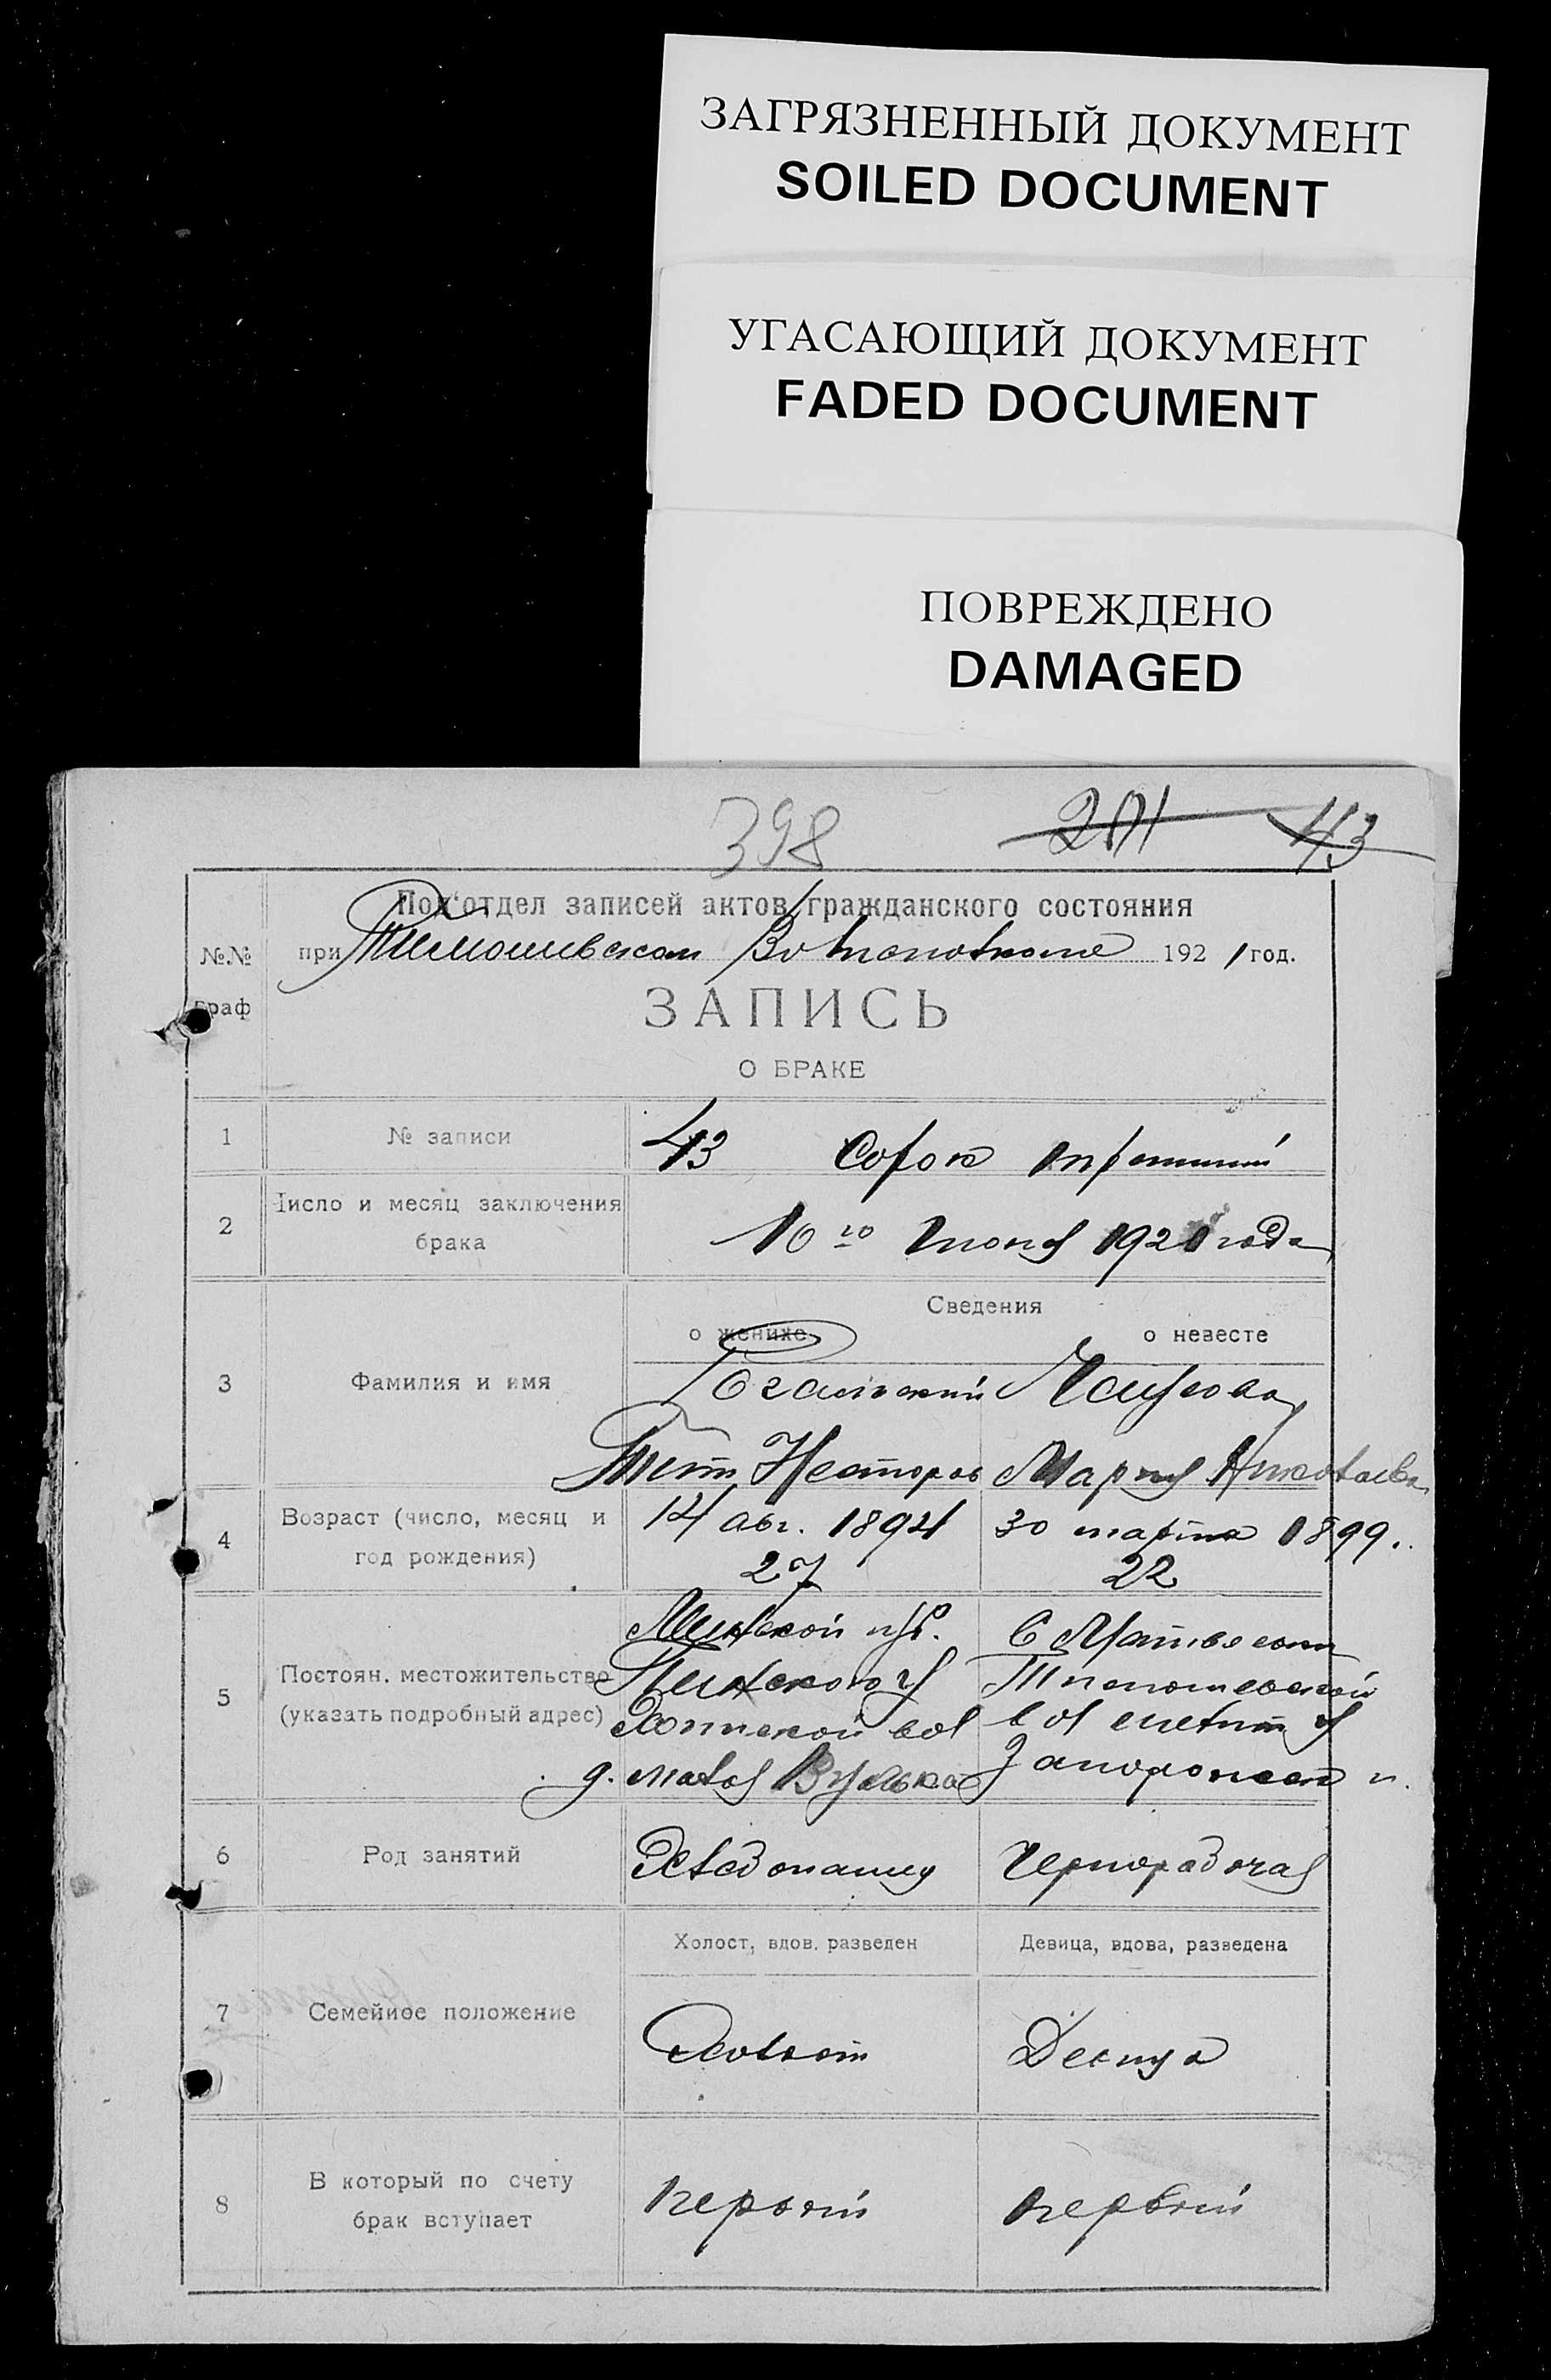 ЗАГРЯЗНЕННЫЙ ДОКУМЕНТ
SOILED DOCUMENT
УГАСАЮЩИЙ ДОКУМЕНТ
FADED DOCUMENT
ПОВРЕЖДЕНО
DAMAGED
398 43
Под'отдел записей актов гражданского состояния
№.№ при 1921 год.
граф
ЗАПИСЬ
О БРАКЕ
1 № записи 43 Сорок третий
2 Число и месяц заключения брака 10го Июня 1921 года
Сведения
о женихе о невесте
3 Фамилия и имя
Тит Несторов Мария Николаевна
4 Возраст (число, месяц и год рождения) 14 авг. 1894 30 марта 1899.
27 22
5 Постоян. местожительство (указать подробный адрес)
Минской губ.
Пинского у
вол
д. малая Вулька
6 Род занятий Хлебопашец Чернорабочая
Холост, вдов. разведен Девица, вдова, разведена
7 Семейное положение Холост Девица
8 В который по счету брак вступает первый первый